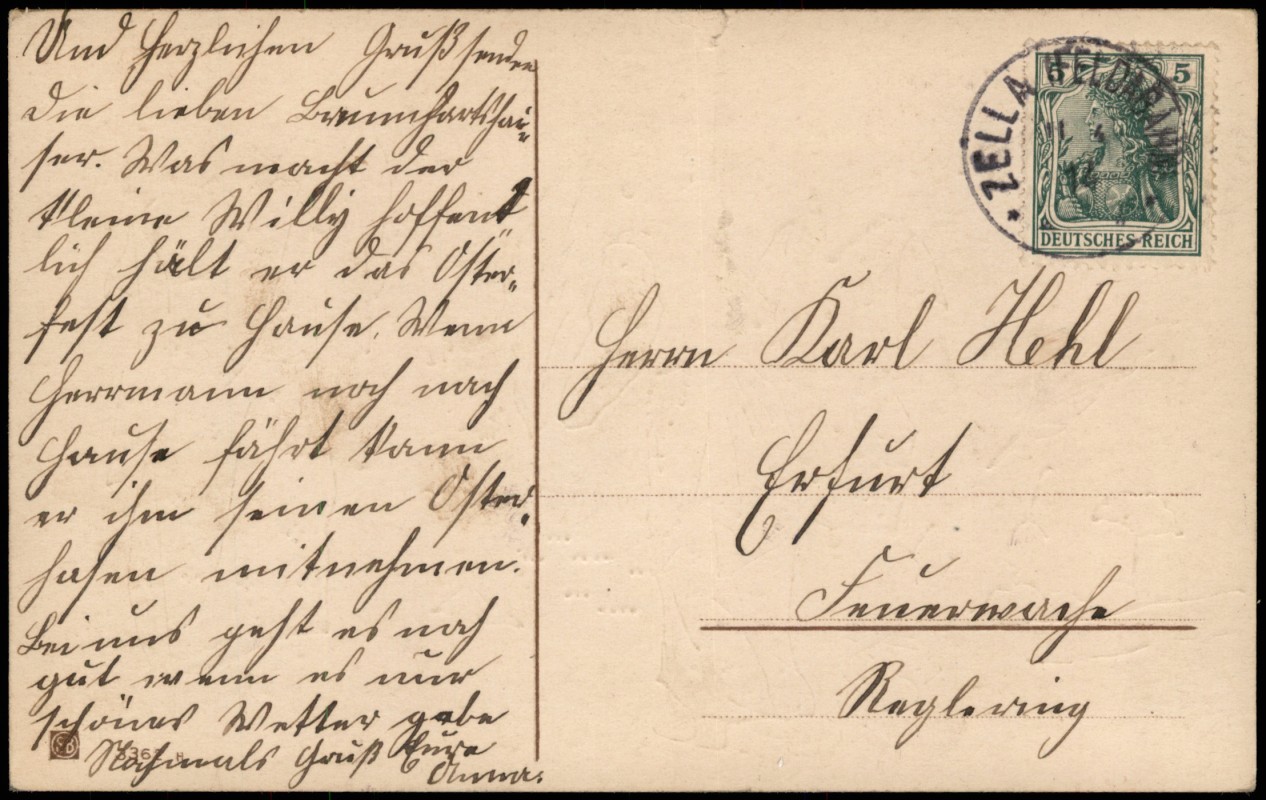 Und herzlichen Gruß senden
die lieben Brunnhartshäu-
ser. Was macht der
kleine Willy hoffent
lich hält er das Oster-
fest zu Hause. Wenn
Herrmann noch nach
Hause fährt kann
er ihm seinen Oster-
hasen mitnehmen.
Bei uns geht es noch
gut wenn es nur
schönes Wetter gebe
Nochmals Gruß Eure
Anna.
ZELLA (FELDABAHN)
5 5
DEUTSCHES REICH
Herrn Karl Hehl
Erfurt
Feuerwache
Reglering